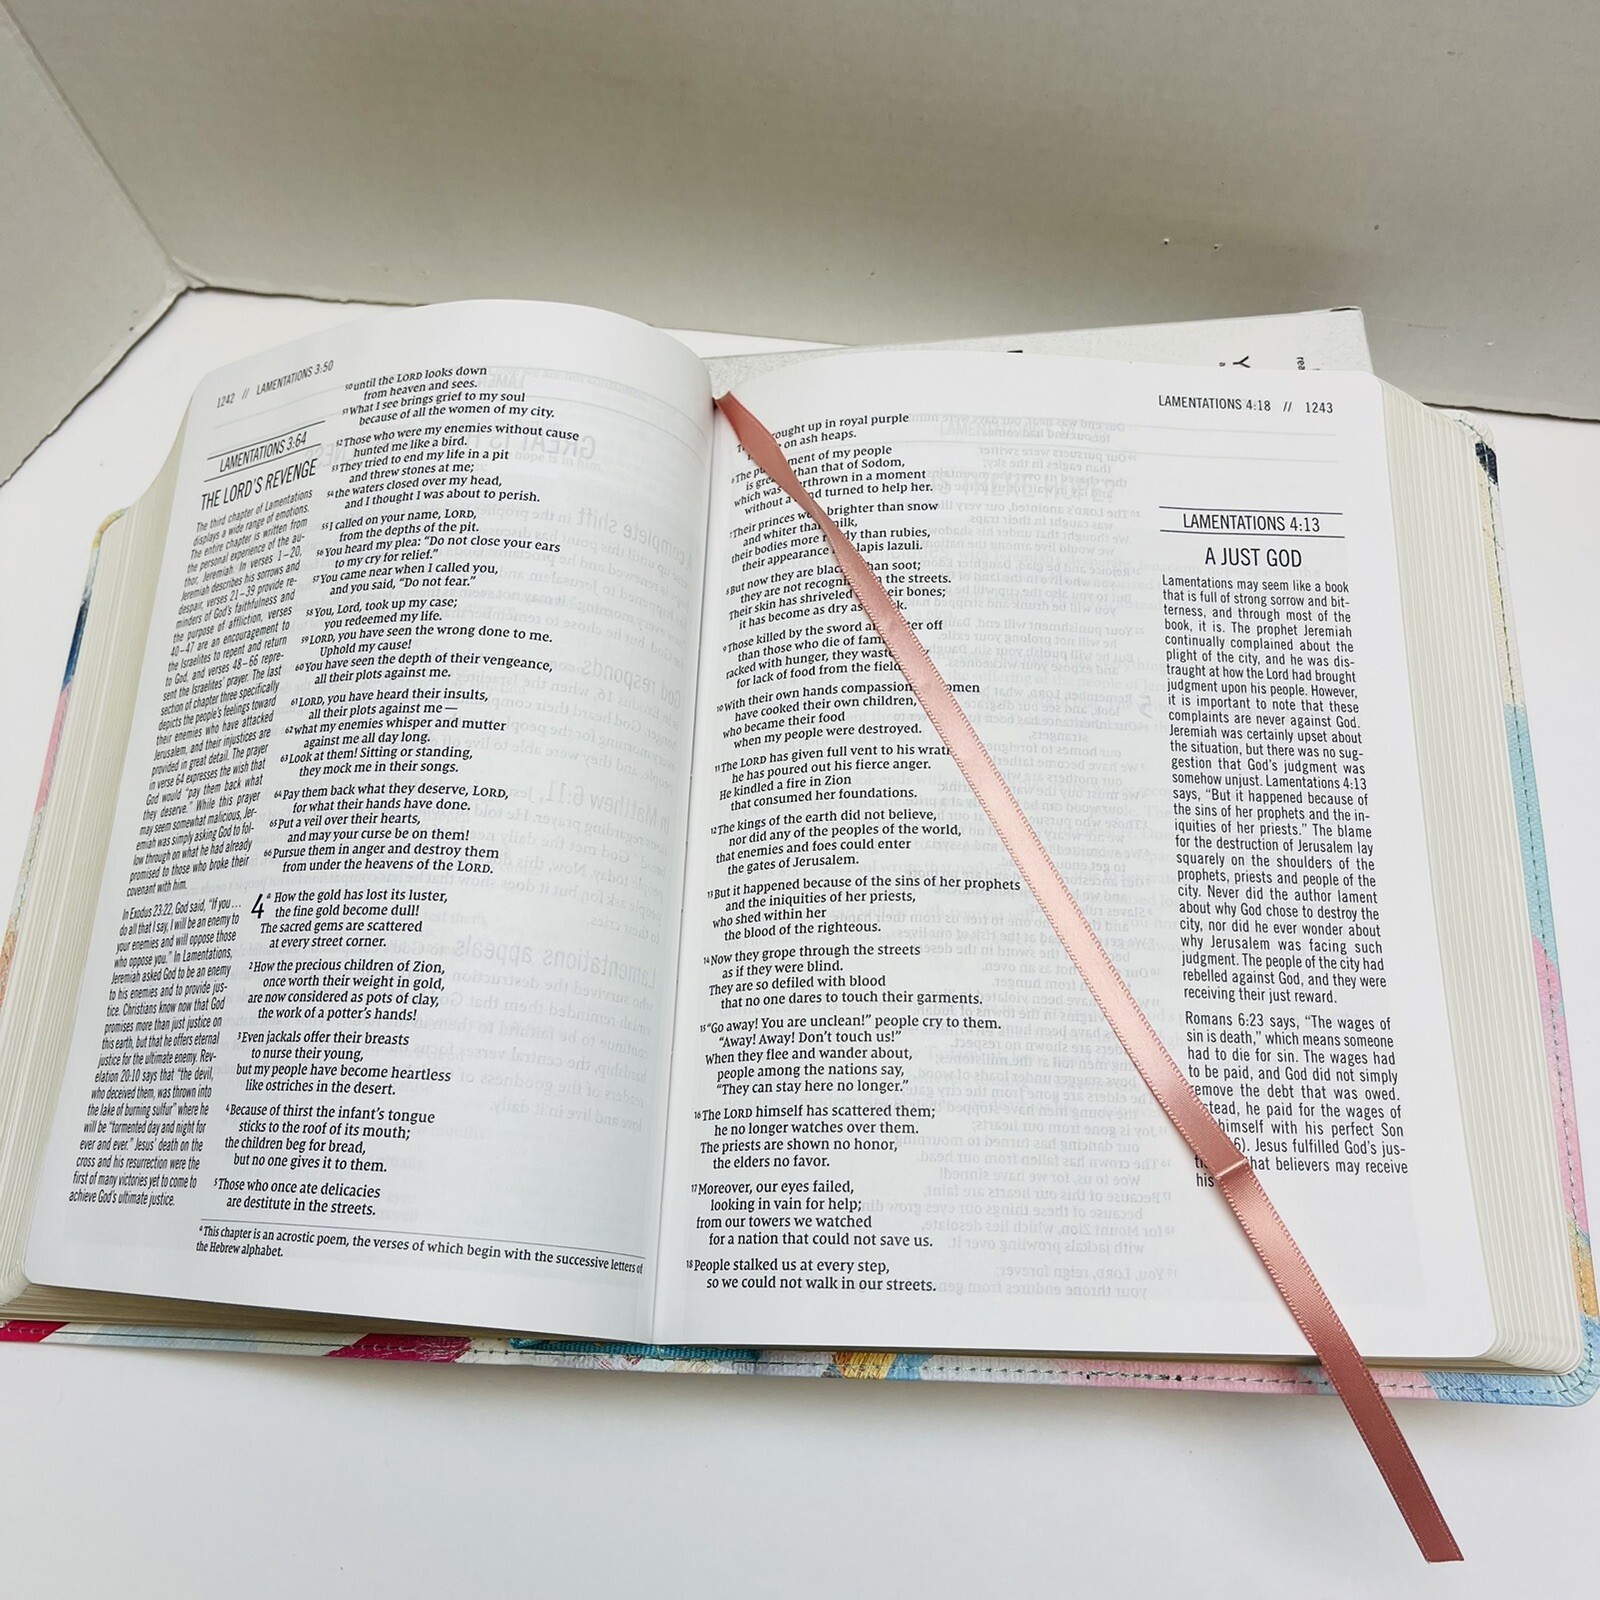 1242 // LAMENTATIONS 3:50
LAMENTATIONS 3:64
THE LORD'S REVENGE
The third chapter of Lamentations
displays a wide range of emotions.
The entire chapter is written from
the personal experience of the au-
thor, Jeremiah. In verses 1–20,
Jeremiah describes his sorrows and
despair, verses 21–39 provide re-
minders of God's faithfulness and
the purpose of affliction, verses
40–47 are an encouragement to
the Israelites to repent and return
to God, and verses 48–66 repre-
sent the Israelites' prayer. The last
section of chapter three specifically
depicts the people's feelings toward
their enemies who have attacked
Jerusalem, and their injustices are
provided in great detail. The prayer
in verse 64 expresses the wish that
God would "pay them back what
they deserve." While this prayer
may seem somewhat malicious, Jer-
emiah was simply asking God to fol-
low through on what he had already
promised to those who broke their
covenant with him.
In Exodus 23:22, God said, "If you ...
do all that I say, I will be an enemy to
your enemies and will oppose those
who oppose you." In Lamentations,
Jeremiah asked God to be an enemy
to his enemies and to provide jus-
tice. Christians know now that God
promises more than just justice on
this earth, but that he offers eternal
justice for the ultimate enemy. Rev-
elation 20:10 says that "the devil,
who deceived them, was thrown into
the lake of burning sulfur" where he
will be "tormented day and night for
ever and ever." Jesus' death on the
cross and his resurrection were the
first of many victories yet to come to
achieve God's ultimate justice.
50 until the LORD looks down
from heaven and sees.
51 What I see brings grief to my soul
because of all the women of my city.
52 Those who were my enemies without cause
hunted me like a bird.
53 They tried to end my life in a pit
and threw stones at me;
54 the waters closed over my head,
and I thought I was about to perish.
55 I called on your name, LORD,
from the depths of the pit.
56 You heard my plea: "Do not close your ears
to my cry for relief."
57 You came near when I called you,
and you said, "Do not fear."
58 You, Lord, took up my case;
you redeemed my life.
59 LORD, you have seen the wrong done to me.
Uphold my cause!
60 You have seen the depth of their vengeance,
all their plots against me.
61 LORD, you have heard their insults,
all their plots against me —
62 what my enemies whisper and mutter
against me all day long.
63 Look at them! Sitting or standing,
they mock me in their songs.
64 Pay them back what they deserve, LORD,
for what their hands have done.
65 Put a veil over their hearts,
and may your curse be on them!
66 Pursue them in anger and destroy them
from under the heavens of the LORD.
4 a How the gold has lost its luster,
the fine gold become dull!
The sacred gems are scattered
at every street corner.
2 How the precious children of Zion,
once worth their weight in gold,
are now considered as pots of clay,
the work of a potter's hands!
3 Even jackals offer their breasts
to nurse their young,
but my people have become heartless
like ostriches in the desert.
4 Because of thirst the infant's tongue
sticks to the roof of its mouth;
the children beg for bread,
but no one gives it to them.
5 Those who once ate delicacies
are destitute in the streets.
a This chapter is an acrostic poem, the verses of which begin with the successive letters of
the Hebrew alphabet.
LAMENTATIONS 4:18 // 1243
rought up in royal purple
on ash heaps.
6 The ment of my people
is than that of Sodom,
which was erthrown in a moment
without a nd turned to help her.
7 Their princes brighter than snow
and whiter milk,
their bodies more dy than rubies,
their appearance lapis lazuli.
8 But now they are than soot;
they are not the streets.
Their skin has shriveled eir bones;
it has become as dry as
9 Those killed by the sword er off
than those who die of
racked with hunger, they
for lack of food from the field
10 With their own hands compassion omen
have cooked their own children,
who became their food
when my people were destroyed.
11 The LORD has given full vent to his wrath
he has poured out his fierce anger.
He kindled a fire in Zion
that consumed her foundations.
12 The kings of the earth did not believe,
nor did any of the peoples of the world,
that enemies and foes could enter
the gates of Jerusalem.
13 But it happened because of the sins of her prophets
and the iniquities of her priests,
who shed within her
the blood of the righteous.
14 Now they grope through the streets
as if they were blind.
They are so defiled with blood
that no one dares to touch their garments.
15 "Go away! You are unclean!" people cry to them.
"Away! Away! Don't touch us!"
When they flee and wander about,
people among the nations say,
"They can stay here no longer."
16 The LORD himself has scattered them;
he no longer watches over them.
The priests are shown no honor,
the elders no favor.
17 Moreover, our eyes failed,
looking in vain for help;
from our towers we watched
for a nation that could not save us.
18 People stalked us at every step,
so we could not walk in our streets.
LAMENTATIONS 4:13
A JUST GOD
Lamentations may seem like a book
that is full of strong sorrow and bit-
terness, and through most of the
book, it is. The prophet Jeremiah
continually complained about the
plight of the city, and he was dis-
traught at how the Lord had brought
judgment upon his people. However,
it is important to note that these
complaints are never against God.
Jeremiah was certainly upset about
the situation, but there was no sug-
gestion that God's judgment was
somehow unjust. Lamentations 4:13
says, "But it happened because of
the sins of her prophets and the in-
iquities of her priests." The blame
for the destruction of Jerusalem lay
squarely on the shoulders of the
prophets, priests and people of the
city. Never did the author lament
about why God chose to destroy the
city, nor did he ever wonder about
why Jerusalem was facing such
judgment. The people of the city had
rebelled against God, and they were
receiving their just reward.
Romans 6:23 says, "The wages of
sin is death," which means someone
had to die for sin. The wages had
to be paid, and God did not simply
remove the debt that was owed.
stead, he paid for the wages of
himself with his perfect Son
6). Jesus fulfilled God's jus-
that believers may receive
his